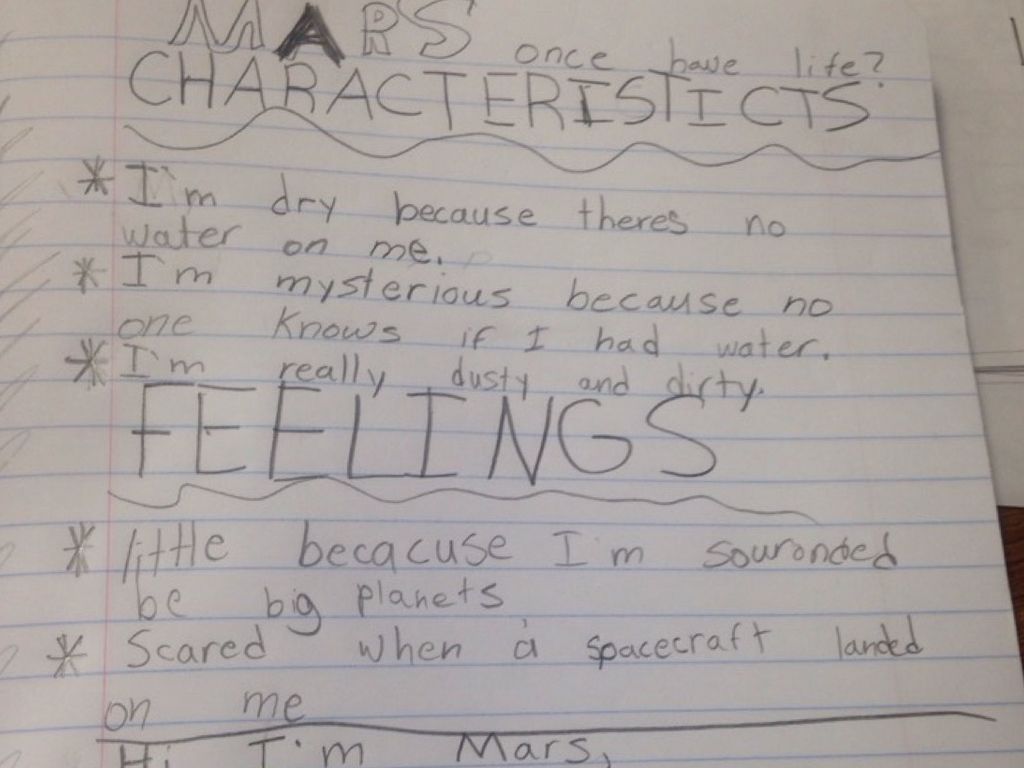 MARS
once have life?
CHARACTERISTICTS
* I'm dry because theres no
water on me.
* I'm mysterious because no
one knows if I had water.
* I'm really dusty and dirty.
FEELINGS
* little becacuse I'm souronded
be big planets
* Scared when a spacecraft landed
on me
Hi I'm Mars,